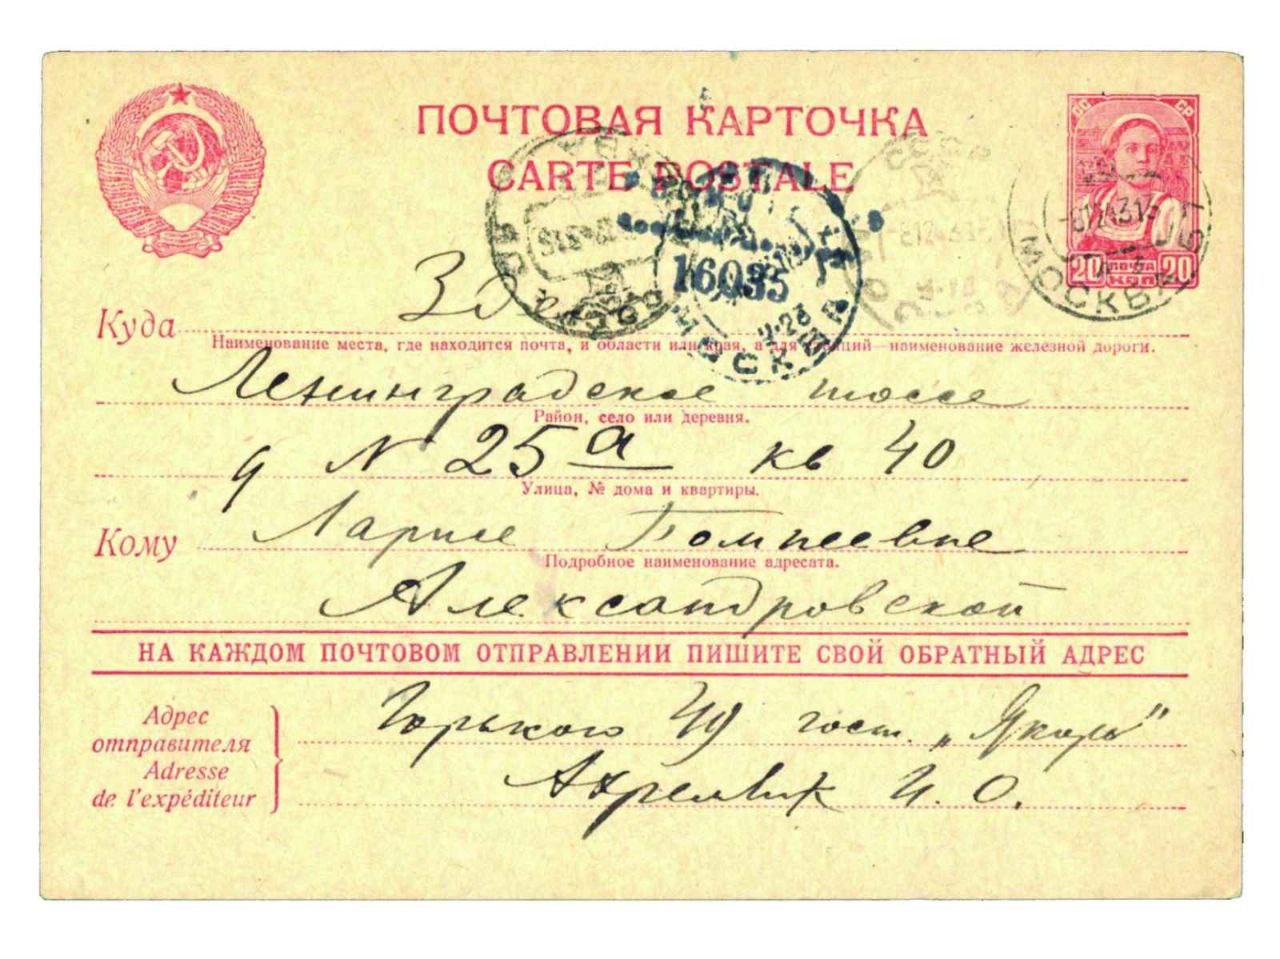 ПОЧТОВАЯ КАРТОЧКА
CARTE POSTALE
СССР
20 ПОЧТА 20
КОП
МОСКВА
16035
МОСКВА
Куда Здесь
Наименование места, где находится почта, и области или края, а для станций—наименование железной дороги.
Ленинградское шоссе
Район, село или деревня.
д N 25а кв 40
Улица, № дома и квартиры.
Кому Ларисе Помпеевне
Подробное наименование адресата.
Александровской
НА КАЖДОМ ПОЧТОВОМ ОТПРАВЛЕНИИ ПИШИТЕ СВОЙ ОБРАТНЫЙ АДРЕС
Адрес
отправителя
Adresse
de l'expéditeur
Горького 49 гост. „Якорь"
И. О.